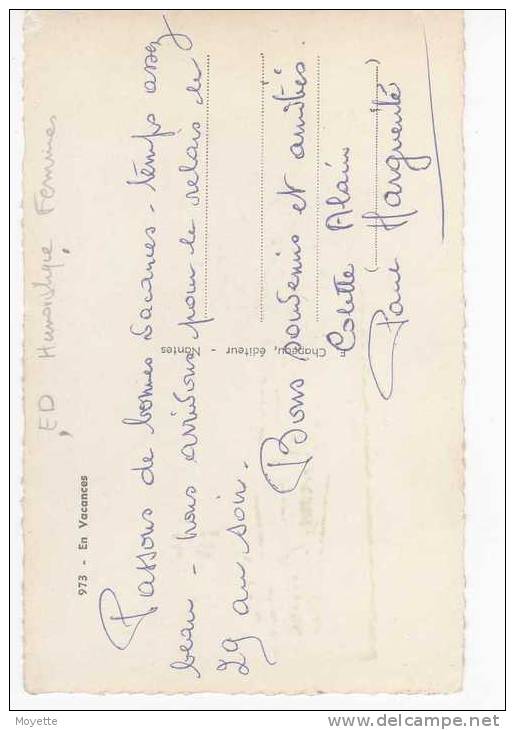 ED Humoristique, Femmes
973 - En Vacances
Passons de bonnes vacances - temps assez
beau - nous arrivons pour le relais le
29 au soir.
Bons souvenirs et amitiés.
Colette Alain
Paul Marguerite
Chapeau, éditeur - Nantes
Moyette
http://www.delcampe.net